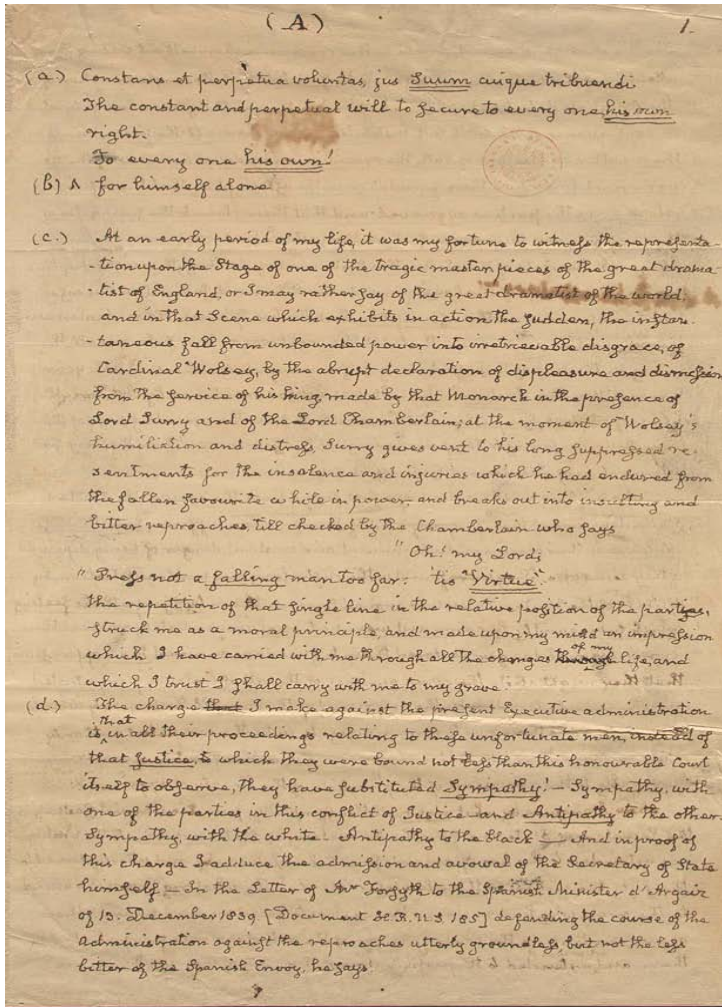 (A)
1.
(a) Constans et perpetua voluntas, jus Suum cuique tribuendi
The constant and perpetual will to secure to every one his own
right.
To every one his own!
(b) ^ for himself alone
(c.) At an early period of my life, it was my fortune to witness the representa-
-tion upon the Stage of one of the tragic master pieces of the great drama
-tist of England, or I may rather say of the great dramatist of the world,
and in that Scene which exhibits in action the sudden, the instan-
-taneous fall from unbounded power into irretrievable disgrace, of
Cardinal Wolsey, by the abrupt declaration of displeasure and dismission
from the service of his king made by that Monarch in the presence of
Lord Surry and of the Lord Chamberlain; at the moment of Wolsey's
humiliation and distress, Surry gives vent to his long suppressed re-
sentments for the insolence and injuries which he had endured from
the fallen favourite while in power, and breaks out into insulting and
bitter reproaches, till checked by the Chamberlain who says
"Oh! my Lord;
"Press not a falling man too far: 'tis "Virtue".
the repetition of that single line in the relative position of the parties,
struck me as a moral principle, and made upon my mind an impression
which I have carried with me through all the changes through of my life, and
which I trust I shall carry with me to my grave.
(d.) The charge that I make against the present Executive administration
is, that in all their proceedings relating to these unfortunate men, instead of
that Justice, to which they were bound not less than this honourable Court
itself to observe, they have substituted Sympathy! – Sympathy, with
one of the parties in this conflict of Justice – and Antipathy to the other.
Sympathy, with the white – Antipathy to the black – And in proof of
this charge I adduce the admission and avowal of the Secretary of State
himself – In the Letter of Mr Forsyth to the Spanish Minister d'Argaiz
of 13. December 1839 [Document H.R.N.S. 185] defending the course of the
administration against the reproaches utterly groundless but not the less
bitter of the Spanish Envoy, he says: